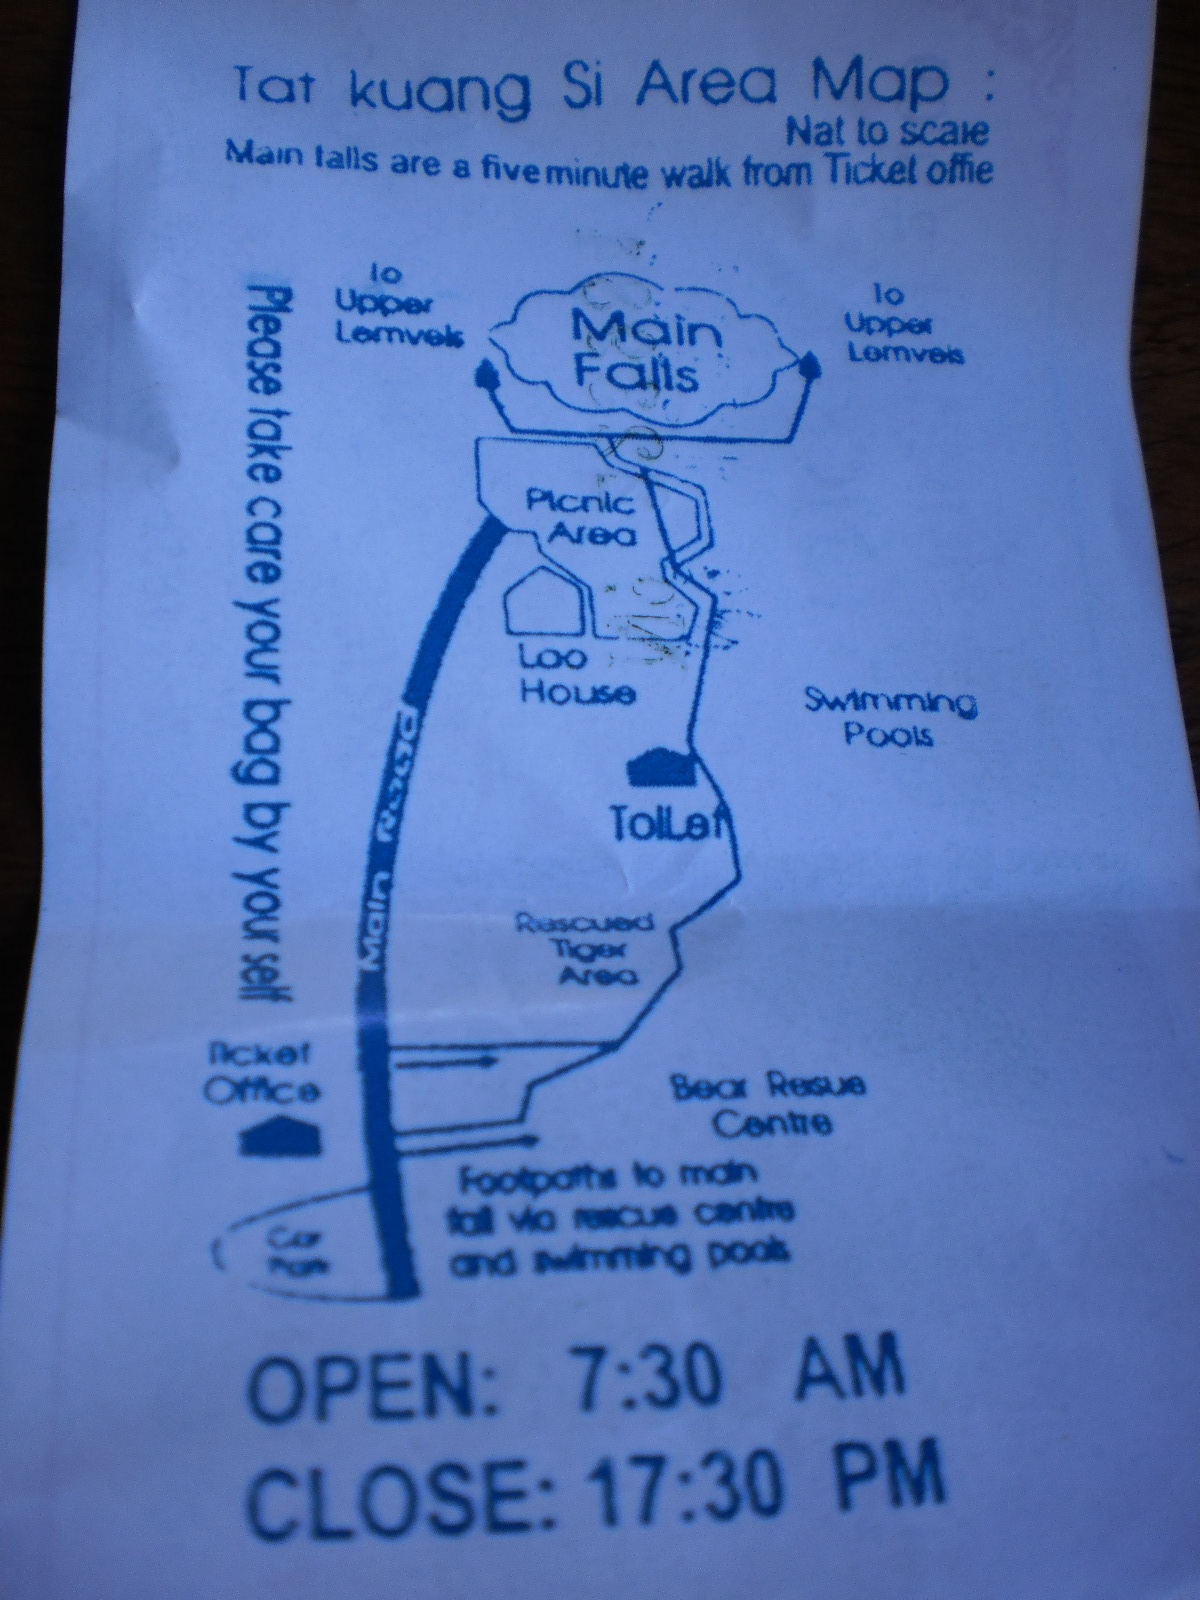 Tat kuang Si Area Map :
Nat to scale
Main falls are a five minute walk from Ticket offie
To
Upper
Lernvels
Main
Falls
To
Upper
Lernvels
Please take care your bag by your self
Picnic
Area
Lao
House
Swimming
Pools
ToiLet
Main Road
Rescued
Tiger
Area
Ticket
Office
Bear Resue
Centre
Footpaths to main
fall via rescue centre
and swimming pools
Car
Park
OPEN: 7:30 AM
CLOSE: 17:30 PM